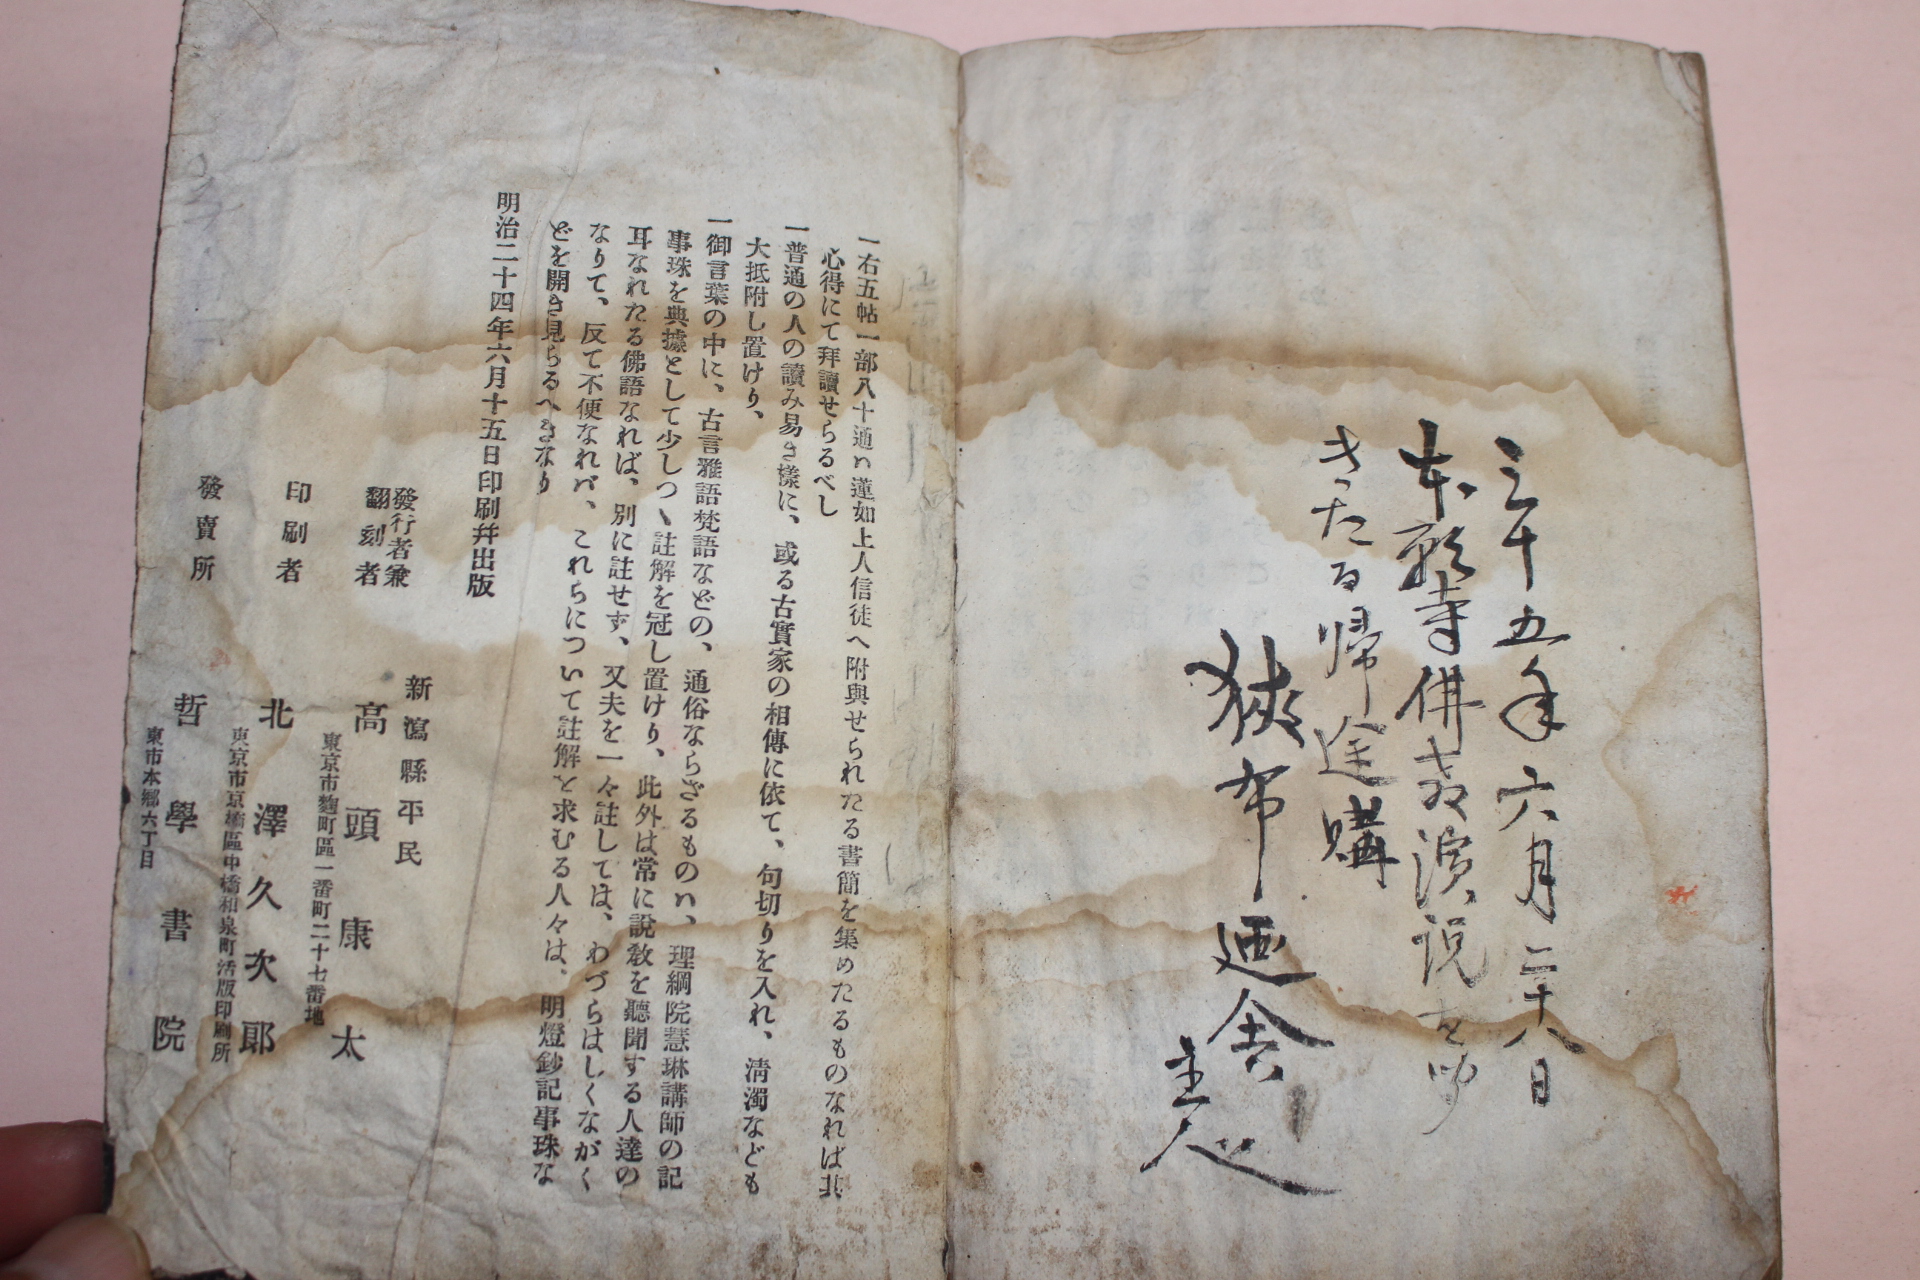 三十五年六月二十八日
本願寺佛教演説を聴
きたる帰途購
狭布廼舎
主人
一右五帖一部八十通ハ蓮如上人信徒へ附與せられたる書簡を集めたるものなれば其
心得にて拜讀せらるべし
一普通の人の讀み易き樣に、或る古實家の相傳に依て、句切りを入れ、淸濁なども
大抵附し置けり、
一御言葉の中に、古言雅語梵語などの、通俗ならざるものハ、理綱院慧琳講師の記
事珠を典據として少しつゝ註解を冠し置けり、此外は常に說敎を聽聞する人達の
耳なれたる佛語なれば、別に註せず、又夫を一々註しては、わづらはしくながく
なりて、反て不便なれバ、これらについて註解を求むる人々は、明燈鈔記事珠な
どを開き見らるへきなり
明治二十四年六月十五日印刷幷出版
新瀉縣平民
發行者兼
翻刻者
高頭康太
東京市麴町區一番町二十七番地
印刷者
北澤久次郞
東京市京橋區中橋和泉町活版印刷所
發賣所
哲學書院
東市本鄕六丁目